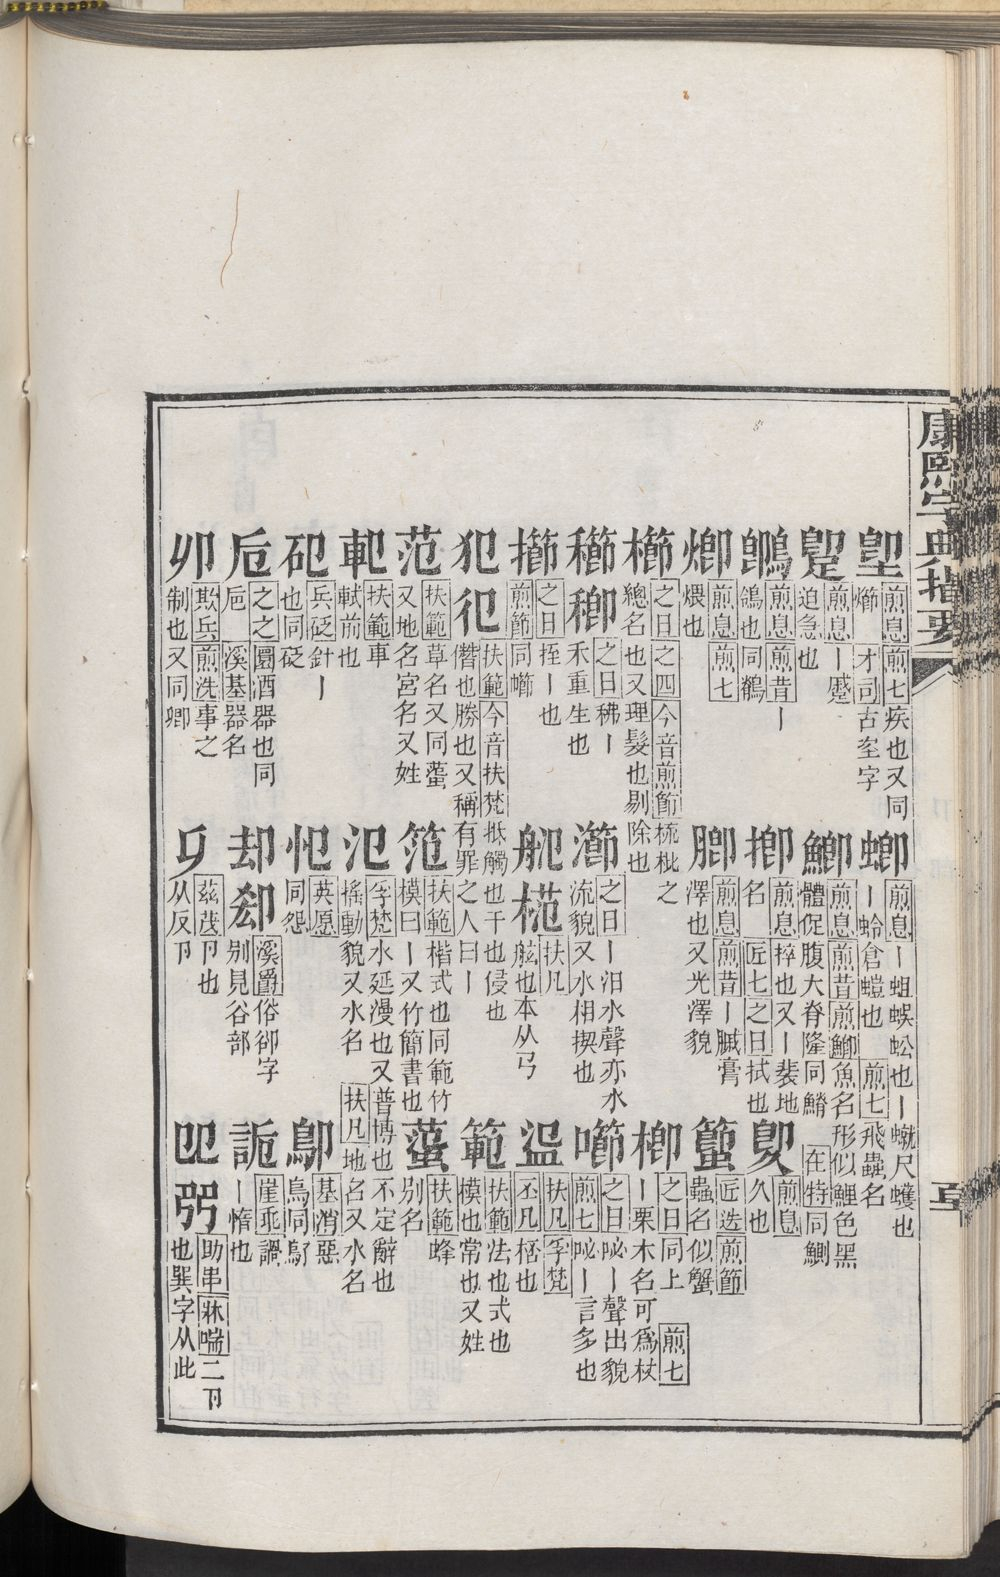 康熙字典指要
堲 煎息 煎七 疾也又同
熁 才司 古垐字
蝍 煎息 丨蛆蜈蚣也丨𧑙尺蠖也
丨蛉倉螘也 煎七 飛蟲名
煎息 丨蹙
迫急也
鯽 煎息 煎昔 煎鯽 魚名形似鯉色黑
體促腹大脊隆同鰿 在特 同鰂
煎息 煎昔 丨
鴿也同鶺
揤 煎息 捽也又丨裴地
名 匠七 之日 拭也
煎息
久也
煎息 煎七
煨也
膷 煎息 煎昔 丨膱膏
澤也又光澤貌
匠迭 煎節
蟲名似蟹
櫛 之日 之四 今音煎節 梳枇之
總名也又理髮也剔除也
楖 之日 同上 煎七
丨栗木名可爲杖
之日 䄶丨
禾重生也
瀄 之日 丨汨水聲亦水
流貌又水相揳也
之日 㘠丨聲出貌
煎七 㘠丨言多也
擳 之日 挃丨也
煎節 同㘉
扶凡
舷也本从𢎘
扶凡 孚梵
丕凡 桮也
犯 扶範 今音扶梵 抵觸也干也侵也
僭也勝也又稱有罪之人曰丨
範 扶範 法也式也
模也常也又姓
范 扶範 草名又同蠚
又地名宮名又姓
笵 扶範 楷式也同範竹
模曰丨又竹簡書也
扶範 蜂
别名
軓 扶範 車
軾前也
氾 孚梵 水延漫也又普博也不定辭也
搖動貌又水名 扶凡 地名又水名
兵砭 針丨
也同砭
㤪 英愿
同怨
基消 惡
鳥同鄥
卮 之之 圜酒器也同
巵 溪基 器名
却 卻 溪爵 俗卻字
别見谷部
詭 崖乖 謂
丨惰也
卯 欺兵 煎洗 事之
制也又同卿
茲茂 卪也
从反卪
助串 牀喘 二卪
也巽字从此